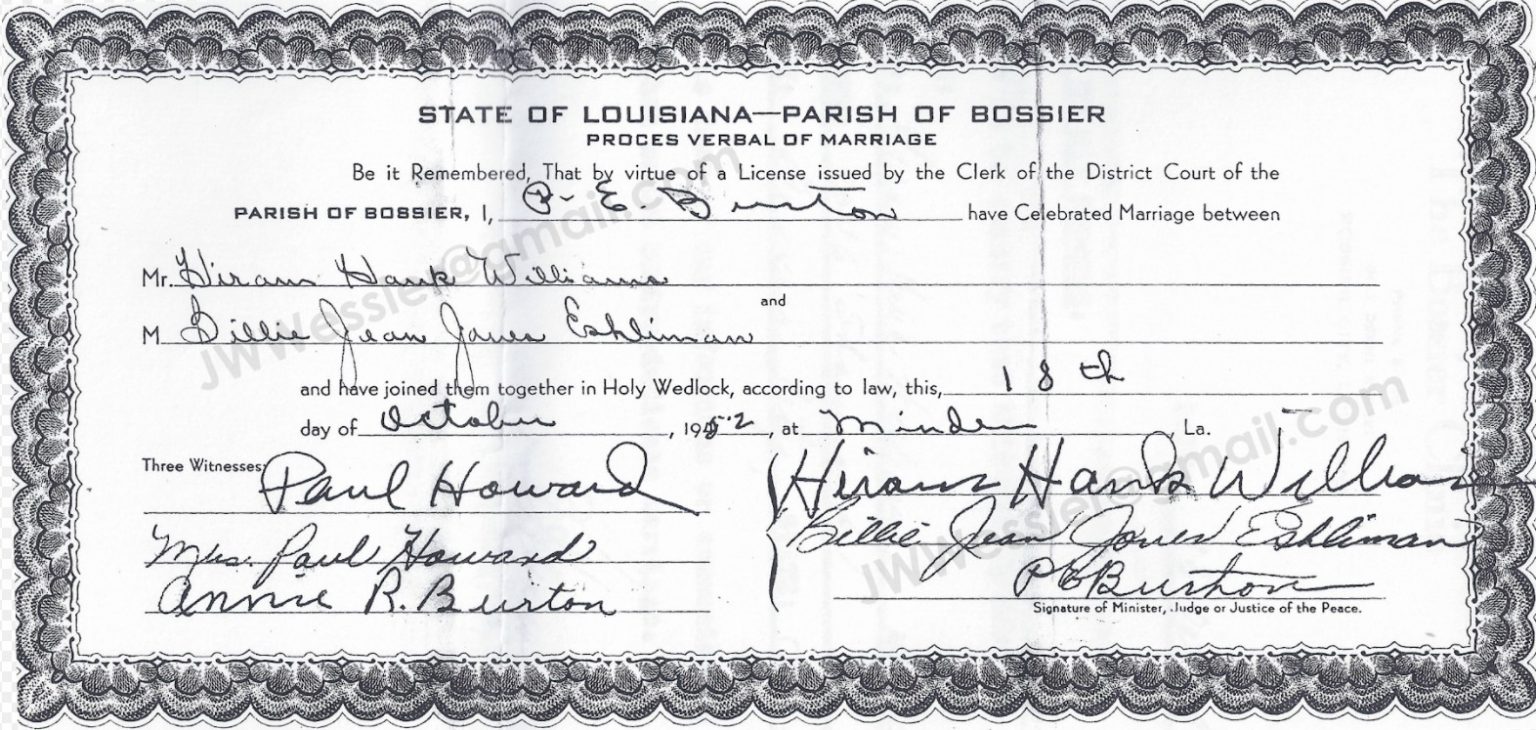 STATE OF LOUISIANA—PARISH OF BOSSIER
PROCES VERBAL OF MARRIAGE
Be it Remembered, That by virtue of a License issued by the Clerk of the District Court of the
PARISH OF BOSSIER, I, P. E. Burton have Celebrated Marriage between
Mr. Hiram Hank Williams
and
M Billie Jean Jones Eshliman
and have joined them together in Holy Wedlock, according to law, this, 18th
day of October, 1952, at Minden, La.
Three Witnesses:
Paul Howard
Hiram Hank Williams
Mrs. Paul Howard
Billie Jean Jones Eshliman
Annie R. Burton
P E Burton
Signature of Minister, Judge or Justice of the Peace.
JWWessier@gmail.com
JWWessier@gmail.com